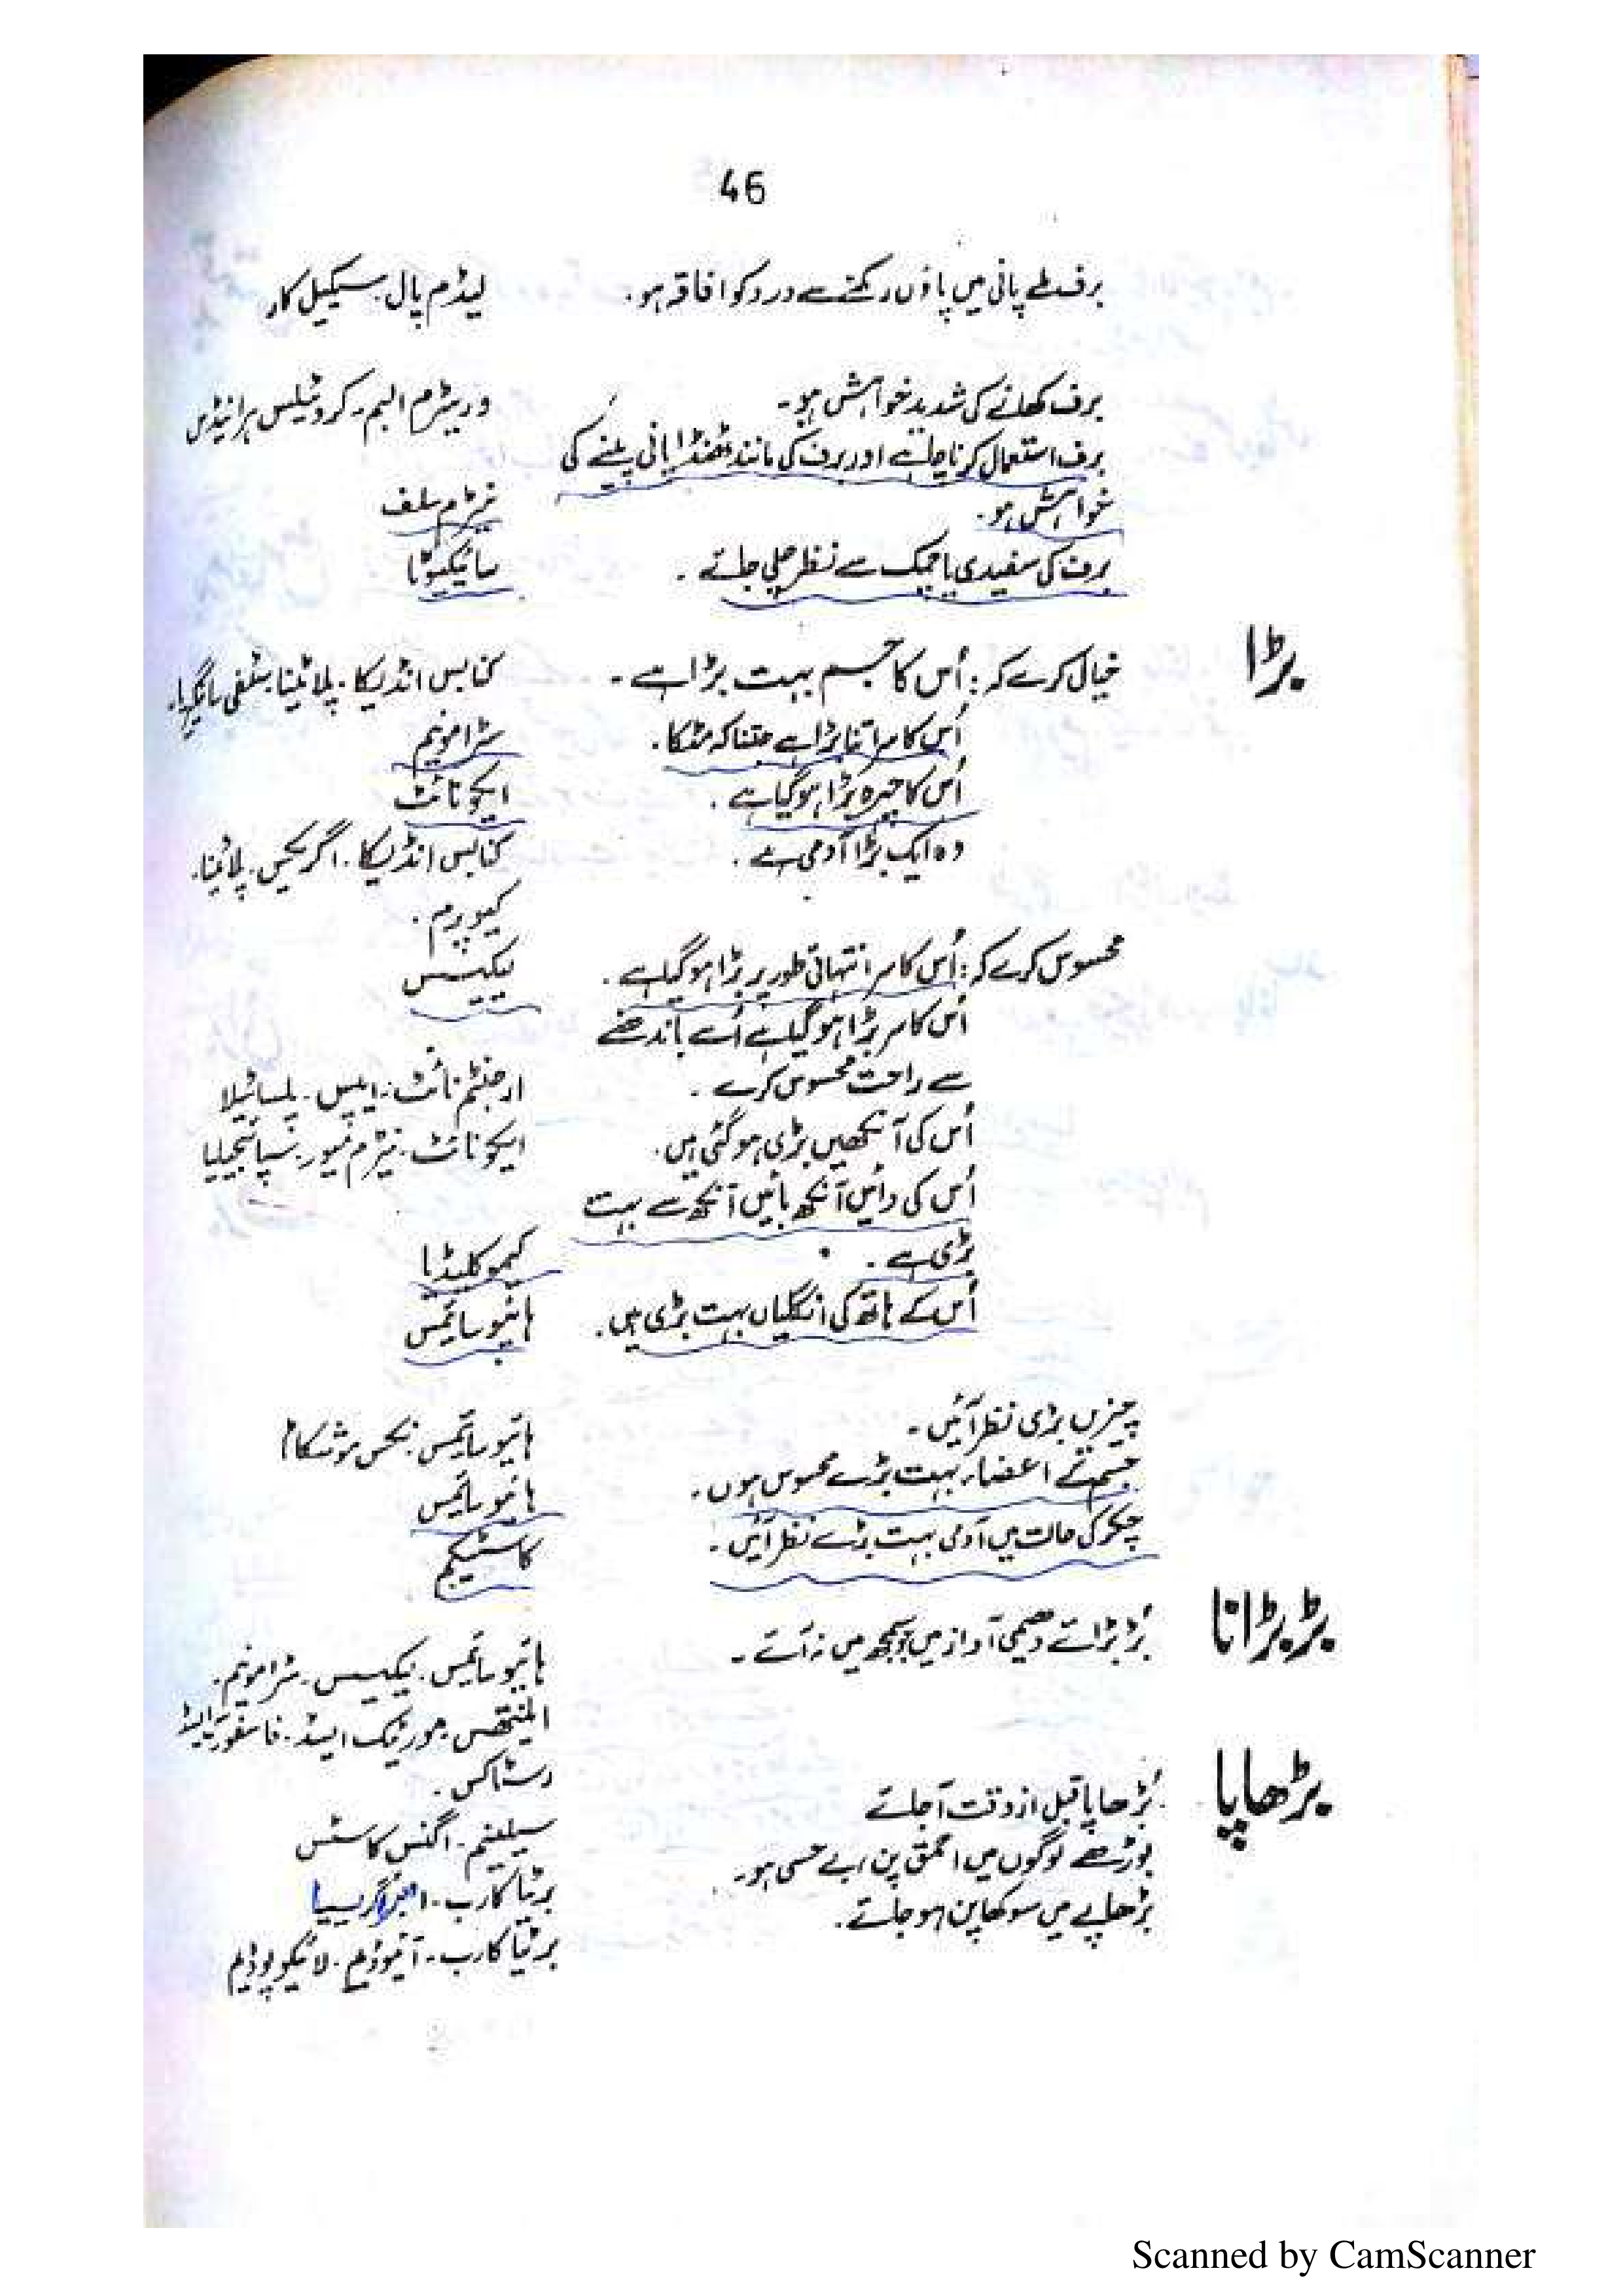 46
برف ملے پانی میں پاؤں رکھنے سے درد کو افاقہ ہو۔ لیڈم پال۔ سیکیل کار
برف کھانے کی شدید خواہش ہو۔ وریٹرم البم۔ کروٹیلس ہرانیڈس
برف استعمال کرنا چاہے اور برف کی مانند ٹھنڈا پانی پینے کی
خواہش ہو۔ نیٹرم سلف
برف کی سفیدی یا چمک سے نظر چلی جائے۔ سائیکیوٹا
بڑا
خیال کرے کہ: اُس کا جسم بہت بڑا ہے۔ کنابس انڈیکا۔ پلاٹینا۔ سٹفی سائیگریا۔
اُس کا سر اتنا بڑا ہے جتنا کہ مٹکا۔ سٹرامونیم
اُس کا چہرہ بڑا ہو گیا ہے۔ ایکونائٹ
وہ ایک بڑا آدمی ہے۔ کنابس انڈیکا۔ اگریکس۔ پلاٹینا۔
کیوپرم۔
محسوس کرے کہ: اُس کا سر انتہائی طور پر بڑا ہو گیا ہے۔ لیکیسس
اُس کا سر بڑا ہو گیا ہے اُسے باندھنے
سے راحت محسوس کرے۔ ارجنٹم نائٹ۔ ایپس۔ پلساٹیلا
اُس کی آنکھیں بڑی ہو گئی ہیں۔ ایکونائٹ۔ نیٹرم میور۔ سپائیجیلیا
اُس کی دائیں آنکھ بائیں آنکھ سے بہت
بڑی ہے۔ کیموکلیڈیا
اُس کے ہاتھ کی انگلیاں بہت بڑی ہیں۔ ہائیوسائمس
چیزیں بڑی نظر آئیں۔ ہائیوسائمس۔ نکس موشکاٹا
جسم کے اعضاء بہت بڑے محسوس ہوں۔ ہائیوسائمس
چکر کی حالت میں آدمی بہت بڑے نظر آئیں۔ کاسٹیکم
بڑبڑانا
بُڑبڑائے دھیمی آواز میں جو سمجھ میں نہ آئے۔ ہائیوسائمس۔ لیکیسس۔ سٹرامونیم۔
ایلنتھس۔ میورٹیک ایسڈ۔ فاسفورک ایسڈ
رسٹاکس۔
بڑھاپا
بُڑھاپا قبل از وقت آ جائے سیلینیم۔ اگنس کاسٹس
بوڑھے لوگوں میں احمق پن، بے حسی ہو۔ برٹیا کارب۔ امبرا گریسیا
بڑھاپے میں سوکھا پن ہو جائے۔ برٹیا کارب۔ آئیوڈیم۔ لائیکوپوڈیم
Scanned by CamScanner